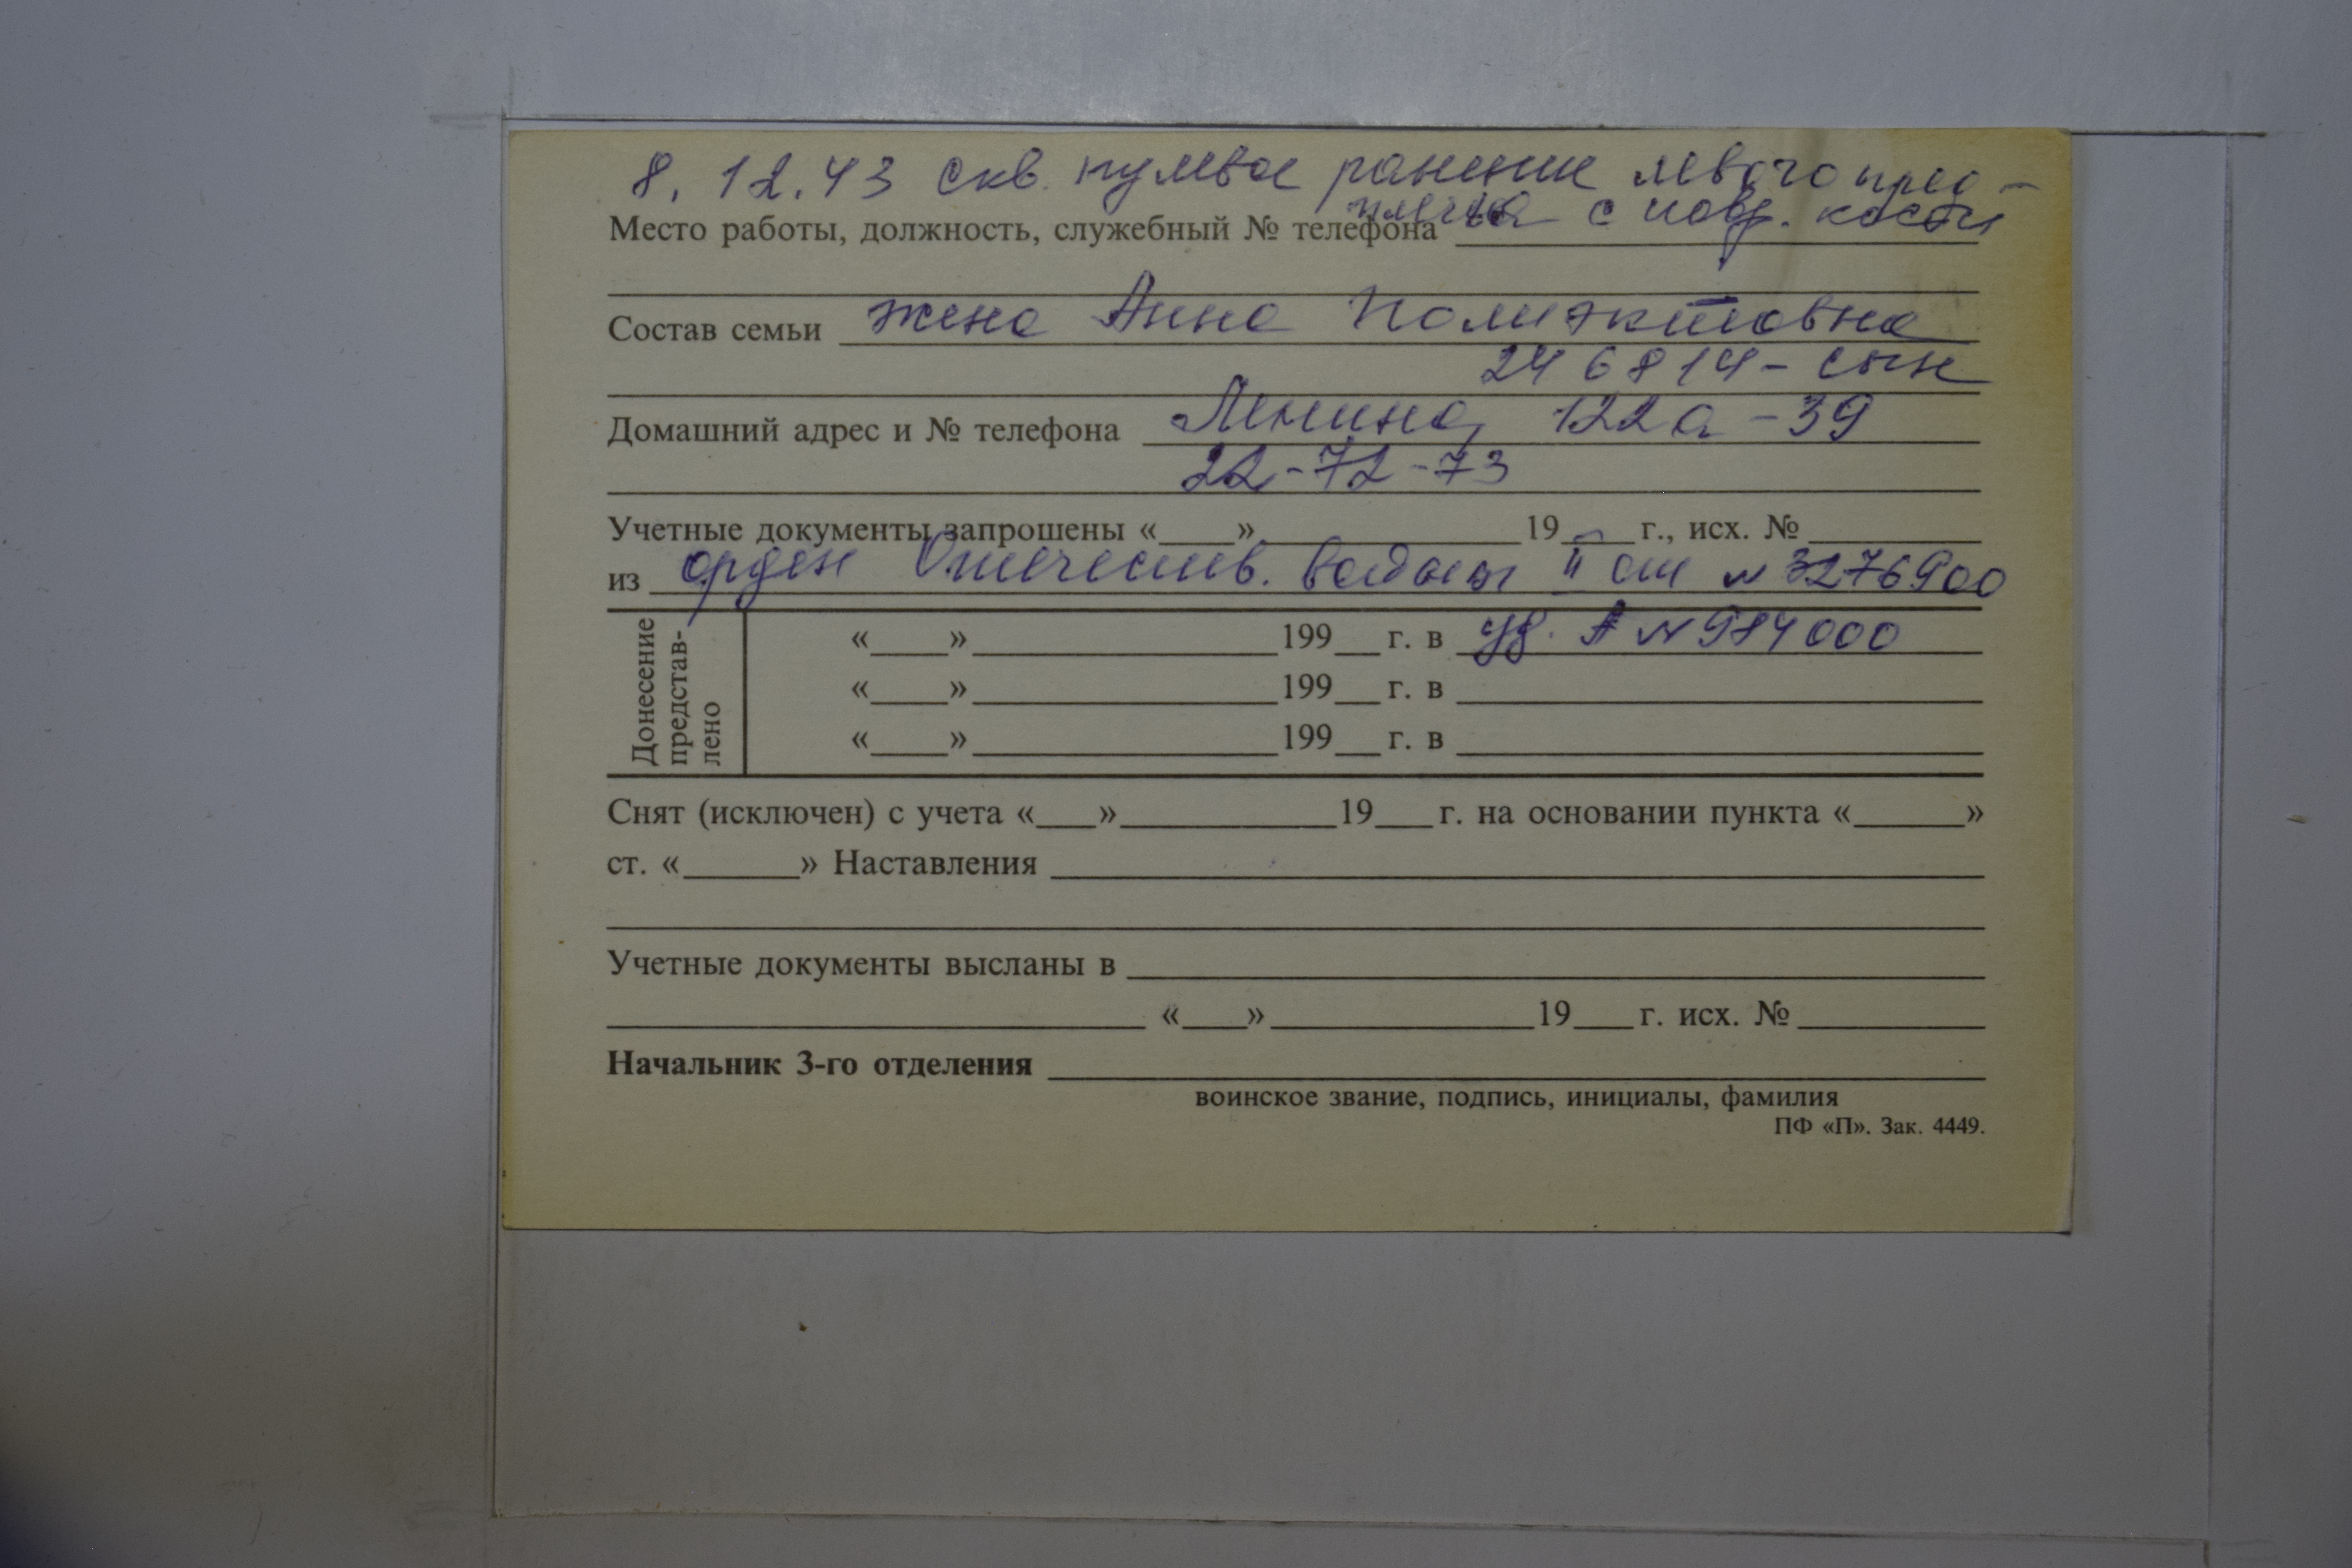 8. 12. 43 скв. пулевое ранение левого пред-
плечья с повр. кости
Место работы, должность, служебный № телефона
Состав семьи жена Анна Полиэктовна
246814 - сын
Домашний адрес и № телефона Ленина, 122а - 39
22-72-73
Учетные документы запрошены «____»____________19____г., исх. №________
из орден Отечествен. войны II ст № 3276900
Донесение представ-лено
«____»____________199__г. в уд. А № 984000
«____»____________199__г. в
«____»____________199__г. в
Снят (исключен) с учета «___»__________19___г. на основании пункта «______»
ст. «______» Наставления
Учетные документы высланы в
«___»____________19___г. исх. №________
Начальник 3-го отделения
воинское звание, подпись, инициалы, фамилия
ПФ «П». Зак. 4449.